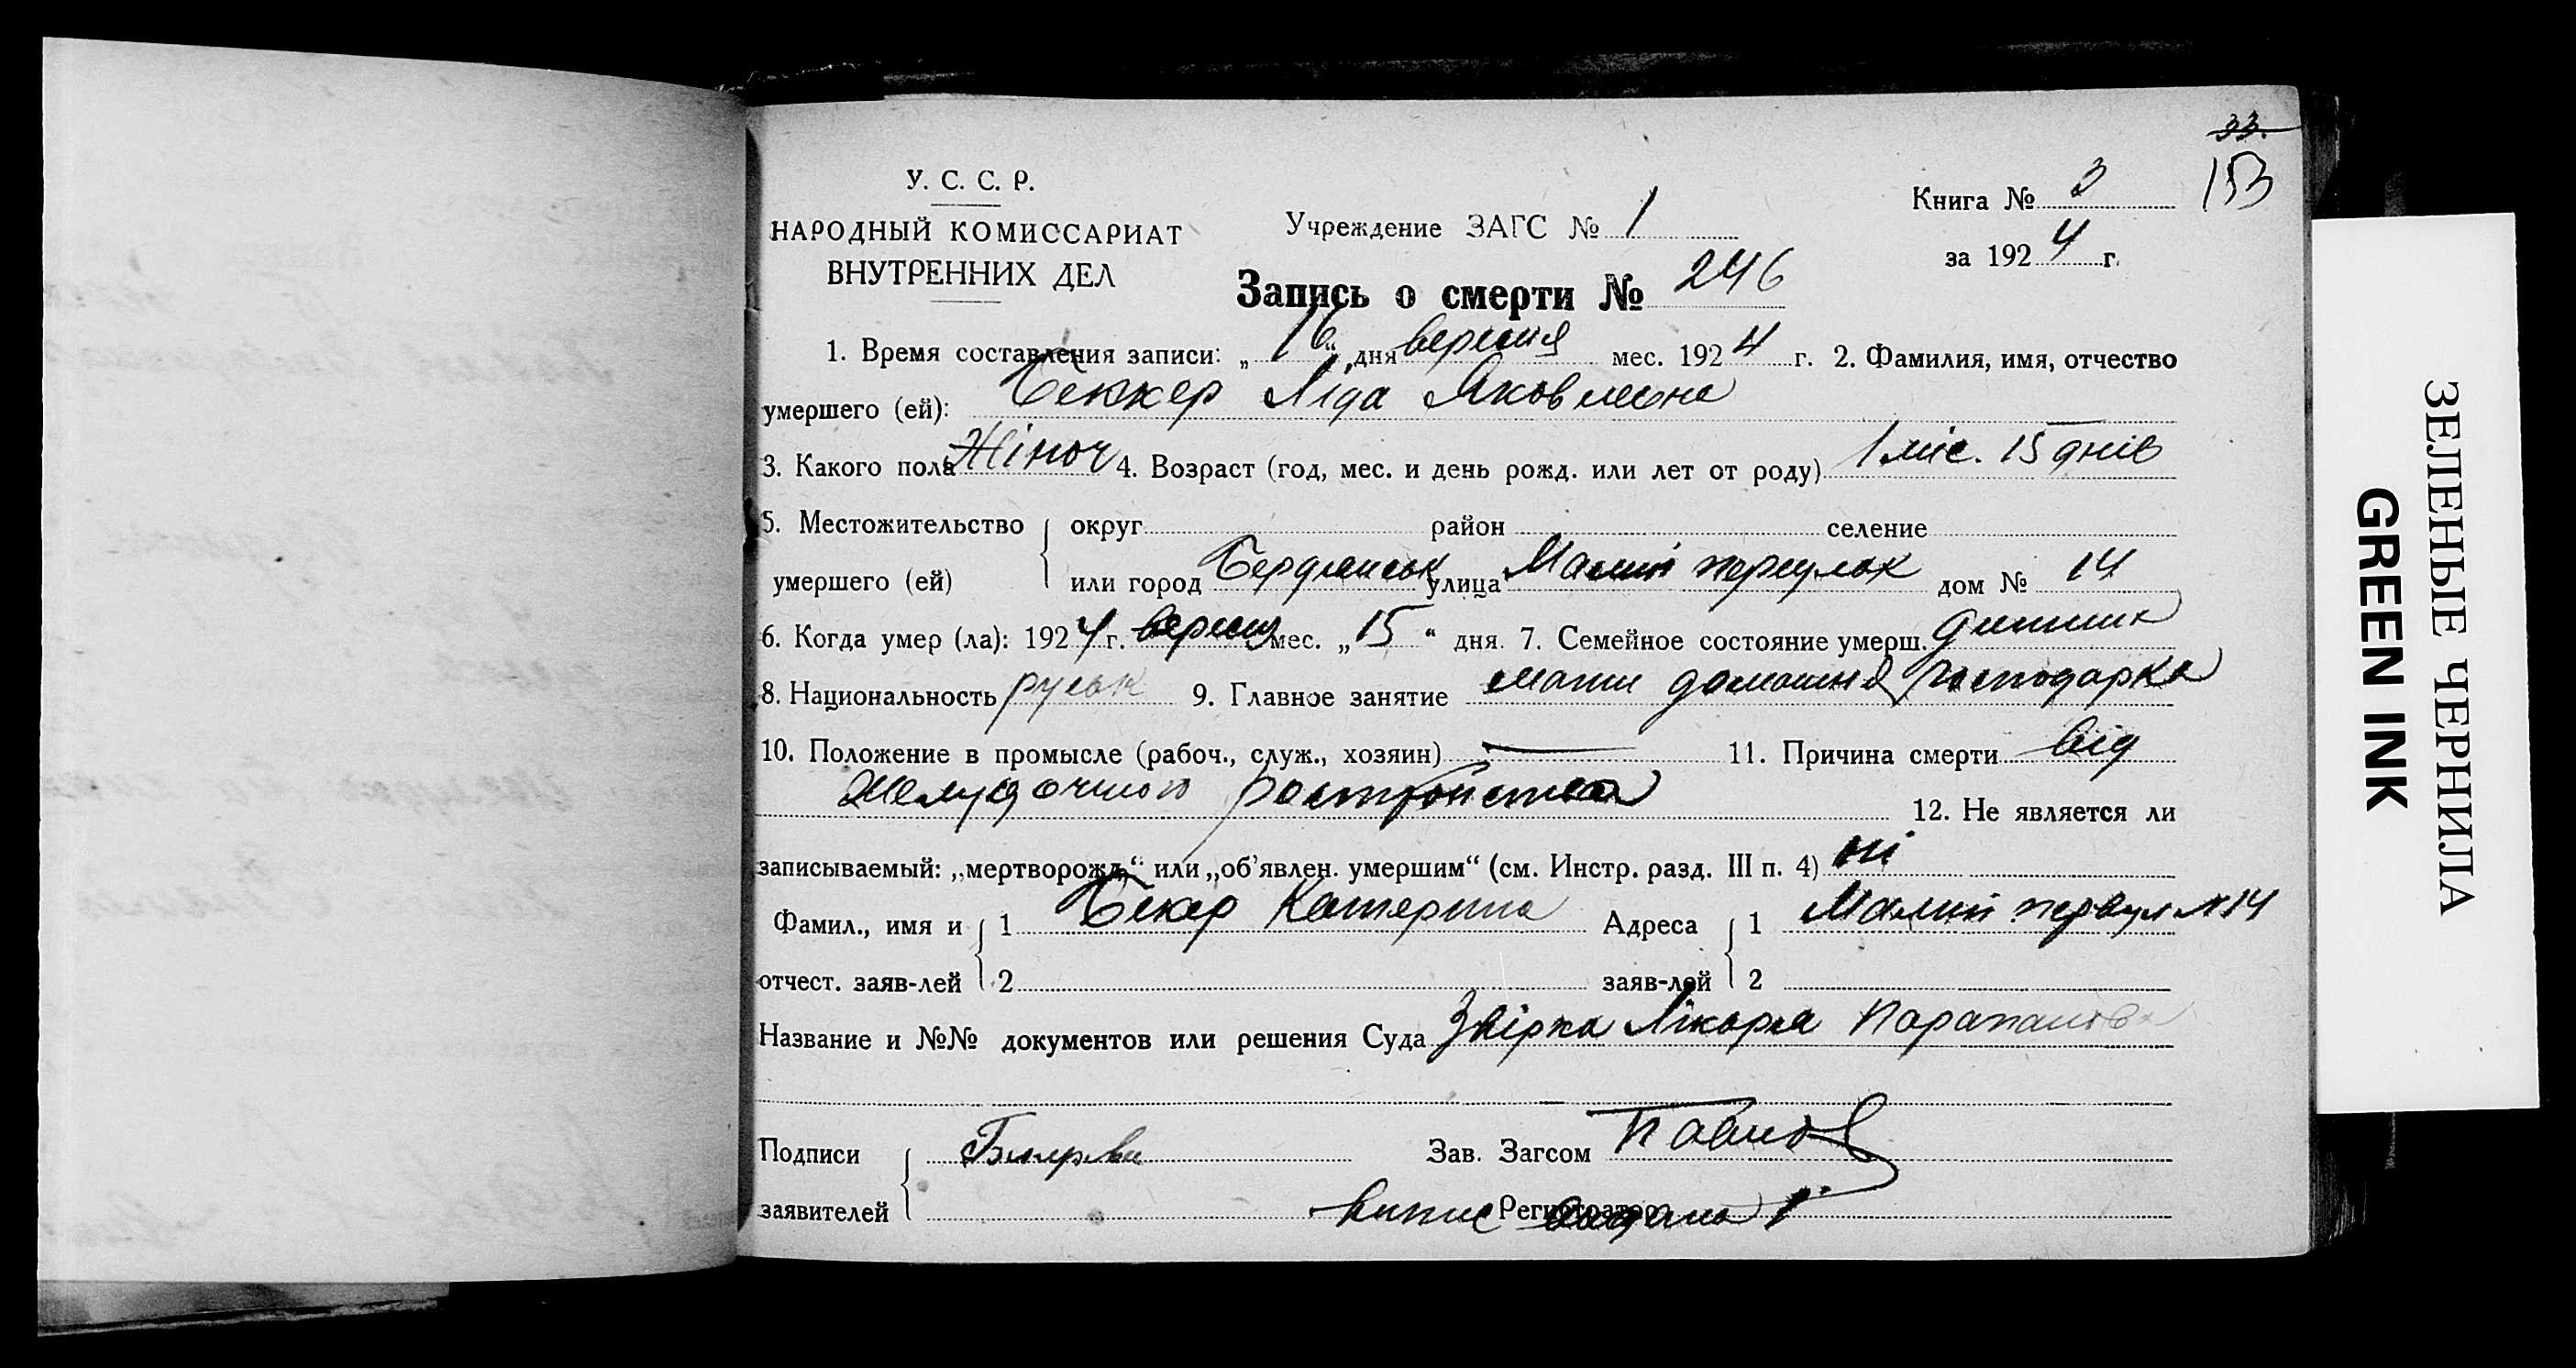 33.
153
У. С. С. Р.
НАРОДНЫЙ КОМИССАРИАТ
ВНУТРЕННИХ ДЕЛ
Учреждение ЗАГС № 1
Книга № 3
за 1924 г.
Запись о смерти № 246
1. Время составления записи: „16“ дня вересня мес. 1924 г. 2. Фамилия, имя, отчество
умершего (ей): Беккер Ліда Яковлевна
3. Какого пола Жіноч 4. Возраст (год, мес. и день рожд. или лет от роду) 1 міс. 15 днів
5. Местожительство округ район селение
умершего (ей) или город Бердянськ улица Малий переулок дом № 14
6. Когда умер (ла): 1924 г. вересня мес. „15“ дня. 7. Семейное состояние умерш.
8. Национальность руськ 9. Главное занятие мати домашня господарка
10. Положение в промысле (рабоч., служ., хозяин) — 11. Причина смерти від
желудочного расстройства
12. Не является ли
записываемый: „мертворожд.“ или „об'явлен. умершим“ (см. Инстр. разд. III п. 4) ні
Фамил., имя и 1 Бекер Катерина Адреса 1 Малий №14
отчест. заяв-лей 2 заяв-лей 2
Название и №№ документов или решения Суда Лікаря
Подписи Зав. Загсом
заявителей Регистратор
випис видана
ЗЕЛЕНЫЕ ЧЕРНИЛА
GREEN INK